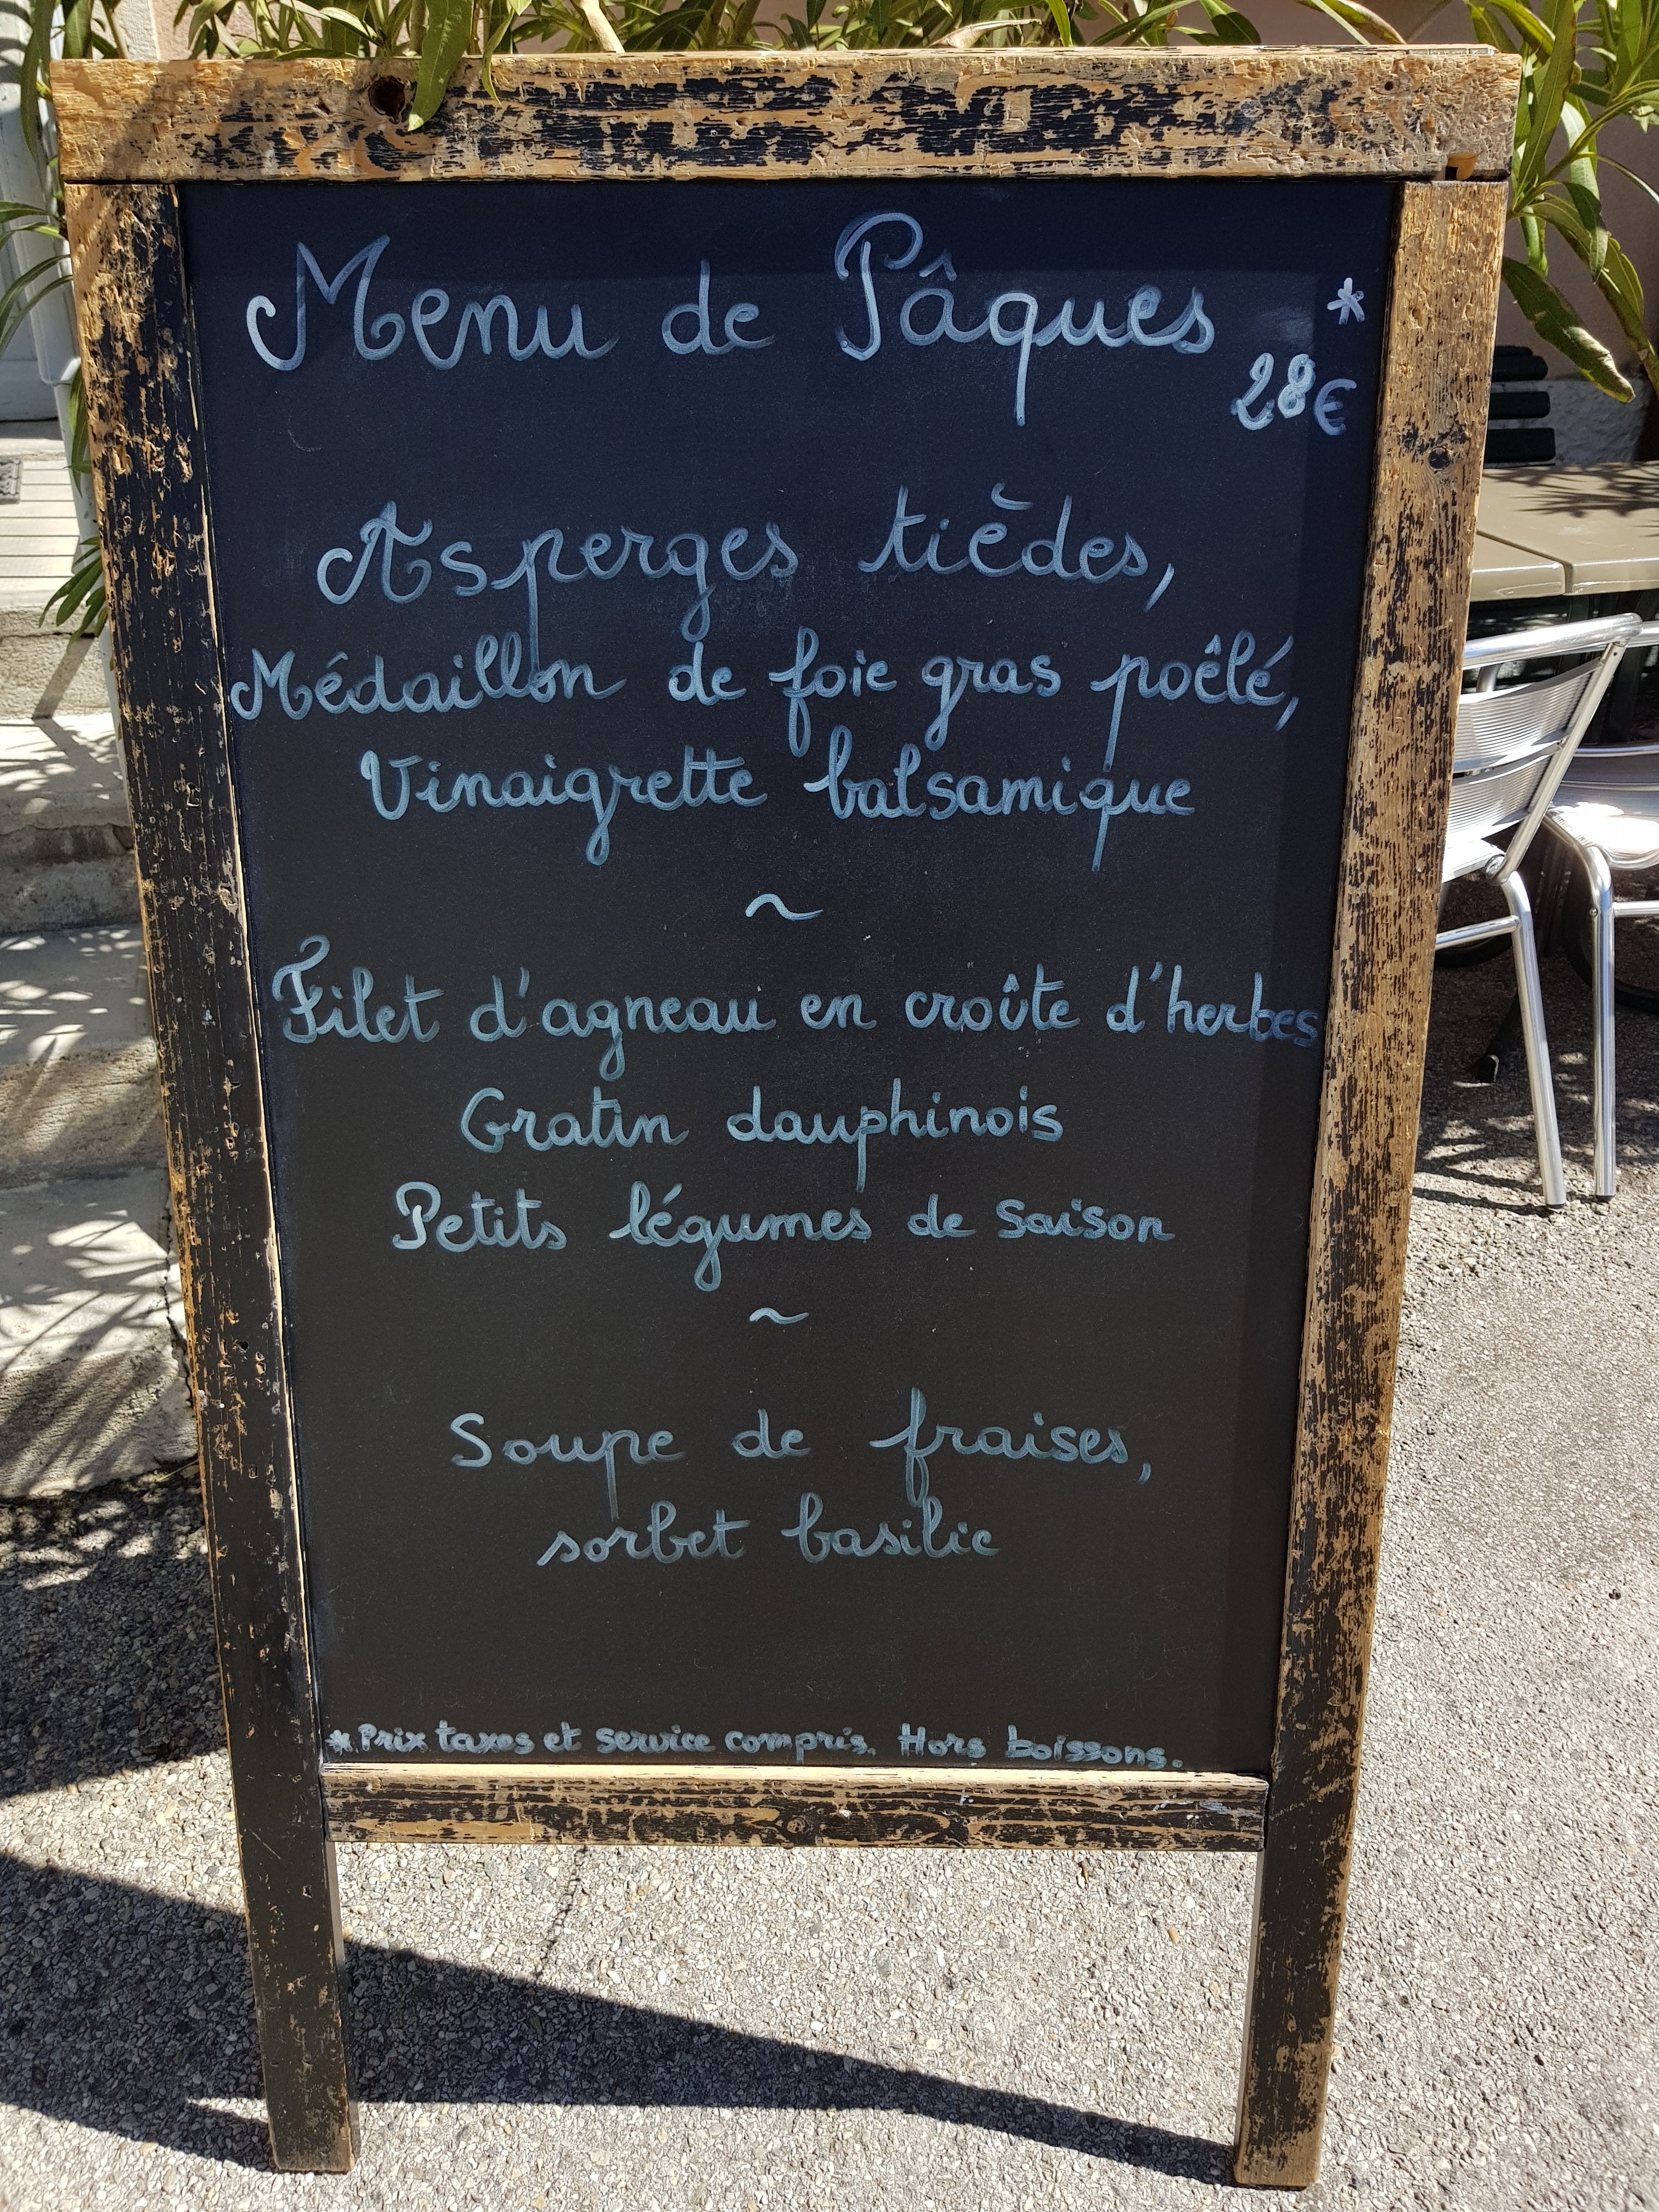 Menu de Pâques *
28€
Asperges tièdes,
Médaillon de foie gras poêlé,
Vinaigrette balsamique
~
Filet d'agneau en croûte d'herbes
Gratin dauphinois
Petits légumes de saison
~
Soupe de fraises,
sorbet basilic
* Prix taxes et service compris. Hors boissons.